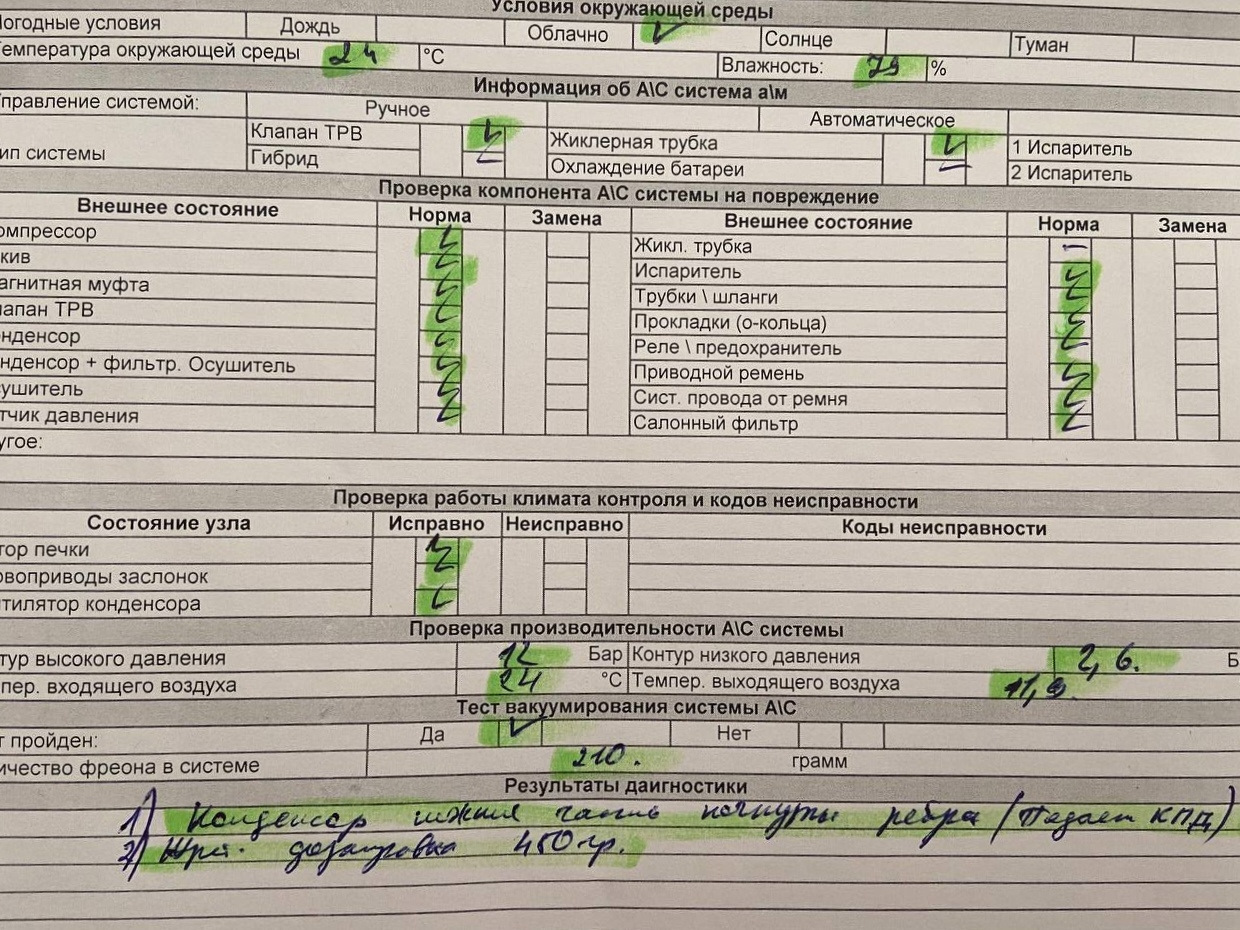 Условия окружающей среды
Погодные условия Дождь Облачно ✓ Солнце Туман
Температура окружающей среды 24 °C Влажность: 79 %
Информация об А\С система а\м
управление системой: Ручное Автоматическое
ип системы Клапан ТРВ ✓ Жиклерная трубка ✓ 1 Испаритель
Гибрид – Охлаждение батареи – 2 Испаритель
Проверка компонента А\С системы на повреждение
Внешнее состояние Норма Замена Внешнее состояние Норма Замена
омпрессор ✓ Жикл. трубка –
кив ✓ Испаритель ✓
агнитная муфта ✓ Трубки \ шланги ✓
лапан ТРВ ✓ Прокладки (о-кольца) ✓
нденсор ✓ Реле \ предохранитель ✓
нденсор + фильтр. Осушитель ✓ Приводной ремень ✓
сушитель ✓ Сист. провода от ремня ✓
тчик давления ✓ Салонный фильтр ✓
угое:
Проверка работы климата контроля и кодов неисправности
Состояние узла Исправно Неисправно Коды неисправности
тор печки ✓
рвоприводы заслонок ✓
тилятор конденсора ✓
Проверка производительности А\С системы
тур высокого давления 12 Бар Контур низкого давления 2,6. Б
мпер. входящего воздуха 24 °C Темпер. выходящего воздуха 11,9
Тест вакуумирования системы А\С
т пройден: Да ✓ Нет
ичество фреона в системе 210. грамм
Результаты даигностики
1) Конденсор нижняя часть погнуты ребра (Падает КПД)
2) дозаправка 450 гр.